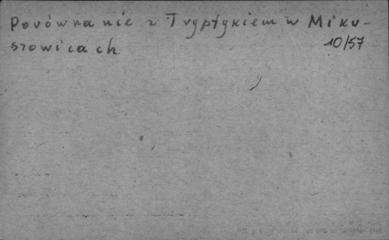 Porównanie z Tryptykiem w Miku-
szowicach
10/57